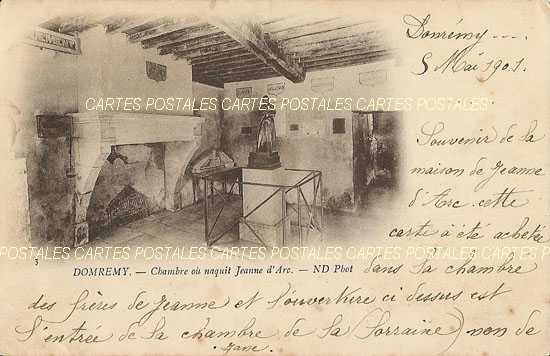 Domrémy ----
5 Mai 1901.
CARTES POSTALES CARTES POSTALES CARTES POSTALES CARTES POSTALES
Souvenir de la
maison de Jeanne
d'Arc. cette
carte à été achetée
CARTES POSTALES CARTES POSTALES CARTES POSTALES CARTES POSTALES
3
DOMREMY. — Chambre où naquit Jeanne d'Arc. — ND Phot
dans la chambre
des frères de Jeanne et l'ouverture ci dessus est
l'entrée de la chambre de la (Lorraine) non de